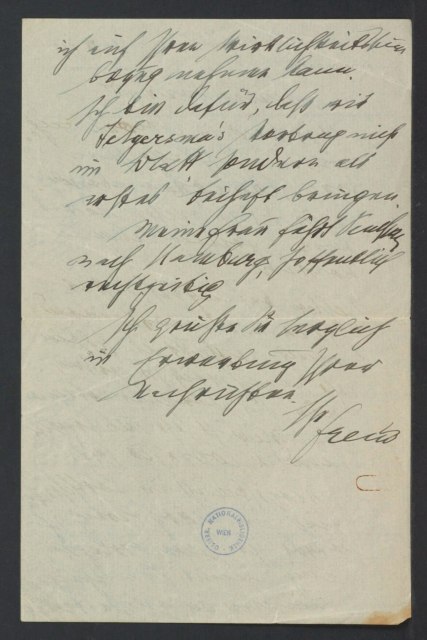 ich auf Ihren Wirklichkeitssinn
bezug nehmen kann.
Ich bin dafür, daß wir
Jelgersma's Vortrag nicht
im Blatt sondern als
erstes Beiheft bringen.
Meine Frau fährt
nach Hamburg, hoffentlich
Ich grüße Sie herzlich
in Erwartung Ihrer
Nachrichten
Ihr
Freud
OESTERR. NATIONALBIBLIOTHEK
WIEN